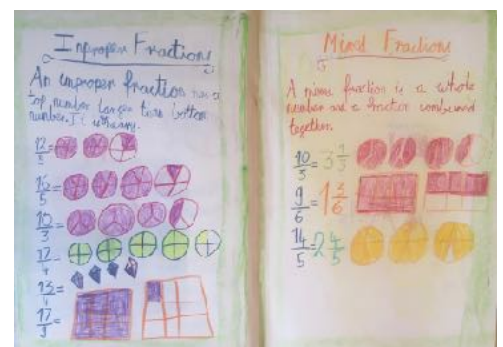 Inproper Fractions
An improper fraction has a
top number longer than bottom
number. I
12/5 =
16/5 =
10/3 =
17/4 =
13/4
17/9 =
Mixed Fractions
A mixed fraction is a whole
number and a fraction combined
together.
10/3 = 3 1/3
9/6 = 1 3/6
14/5 = 2 4/5